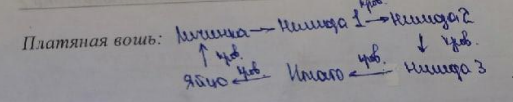 кров.
Платяная вошь: Личинка → Нимфа 1 → Нимфа 2
↑ кров. ↓ кров.
Яйцо ← кров. Имаго ← кров. Нимфа 3